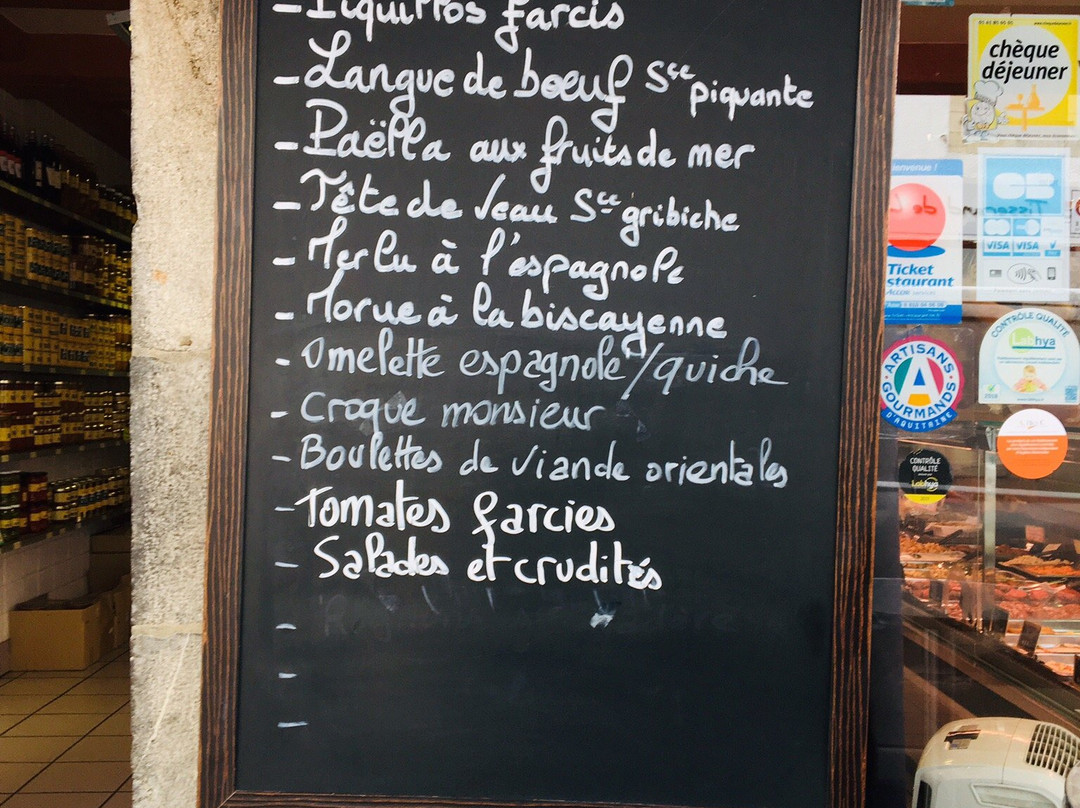 - Piquillos farcis
- Langue de bœuf Sce piquante
- Paëlla aux fruits de mer
- Tête de Veau Sce gribiche
- Merlu à l'espagnole
- Morue à la biscayenne
- Omelette espagnole/quiche
- Croque monsieur
- Boulettes de viande orientales
- Tomates farcies
- Salades et crudités
-
-
-
chèque
déjeuner
VISA VISA
Ticket
ARTISANS
GOURMANDS
D'AQUITAINE
CONTRÔLE QUALITÉ
Labhya
CONTRÔLE
QUALITÉ
Labhya